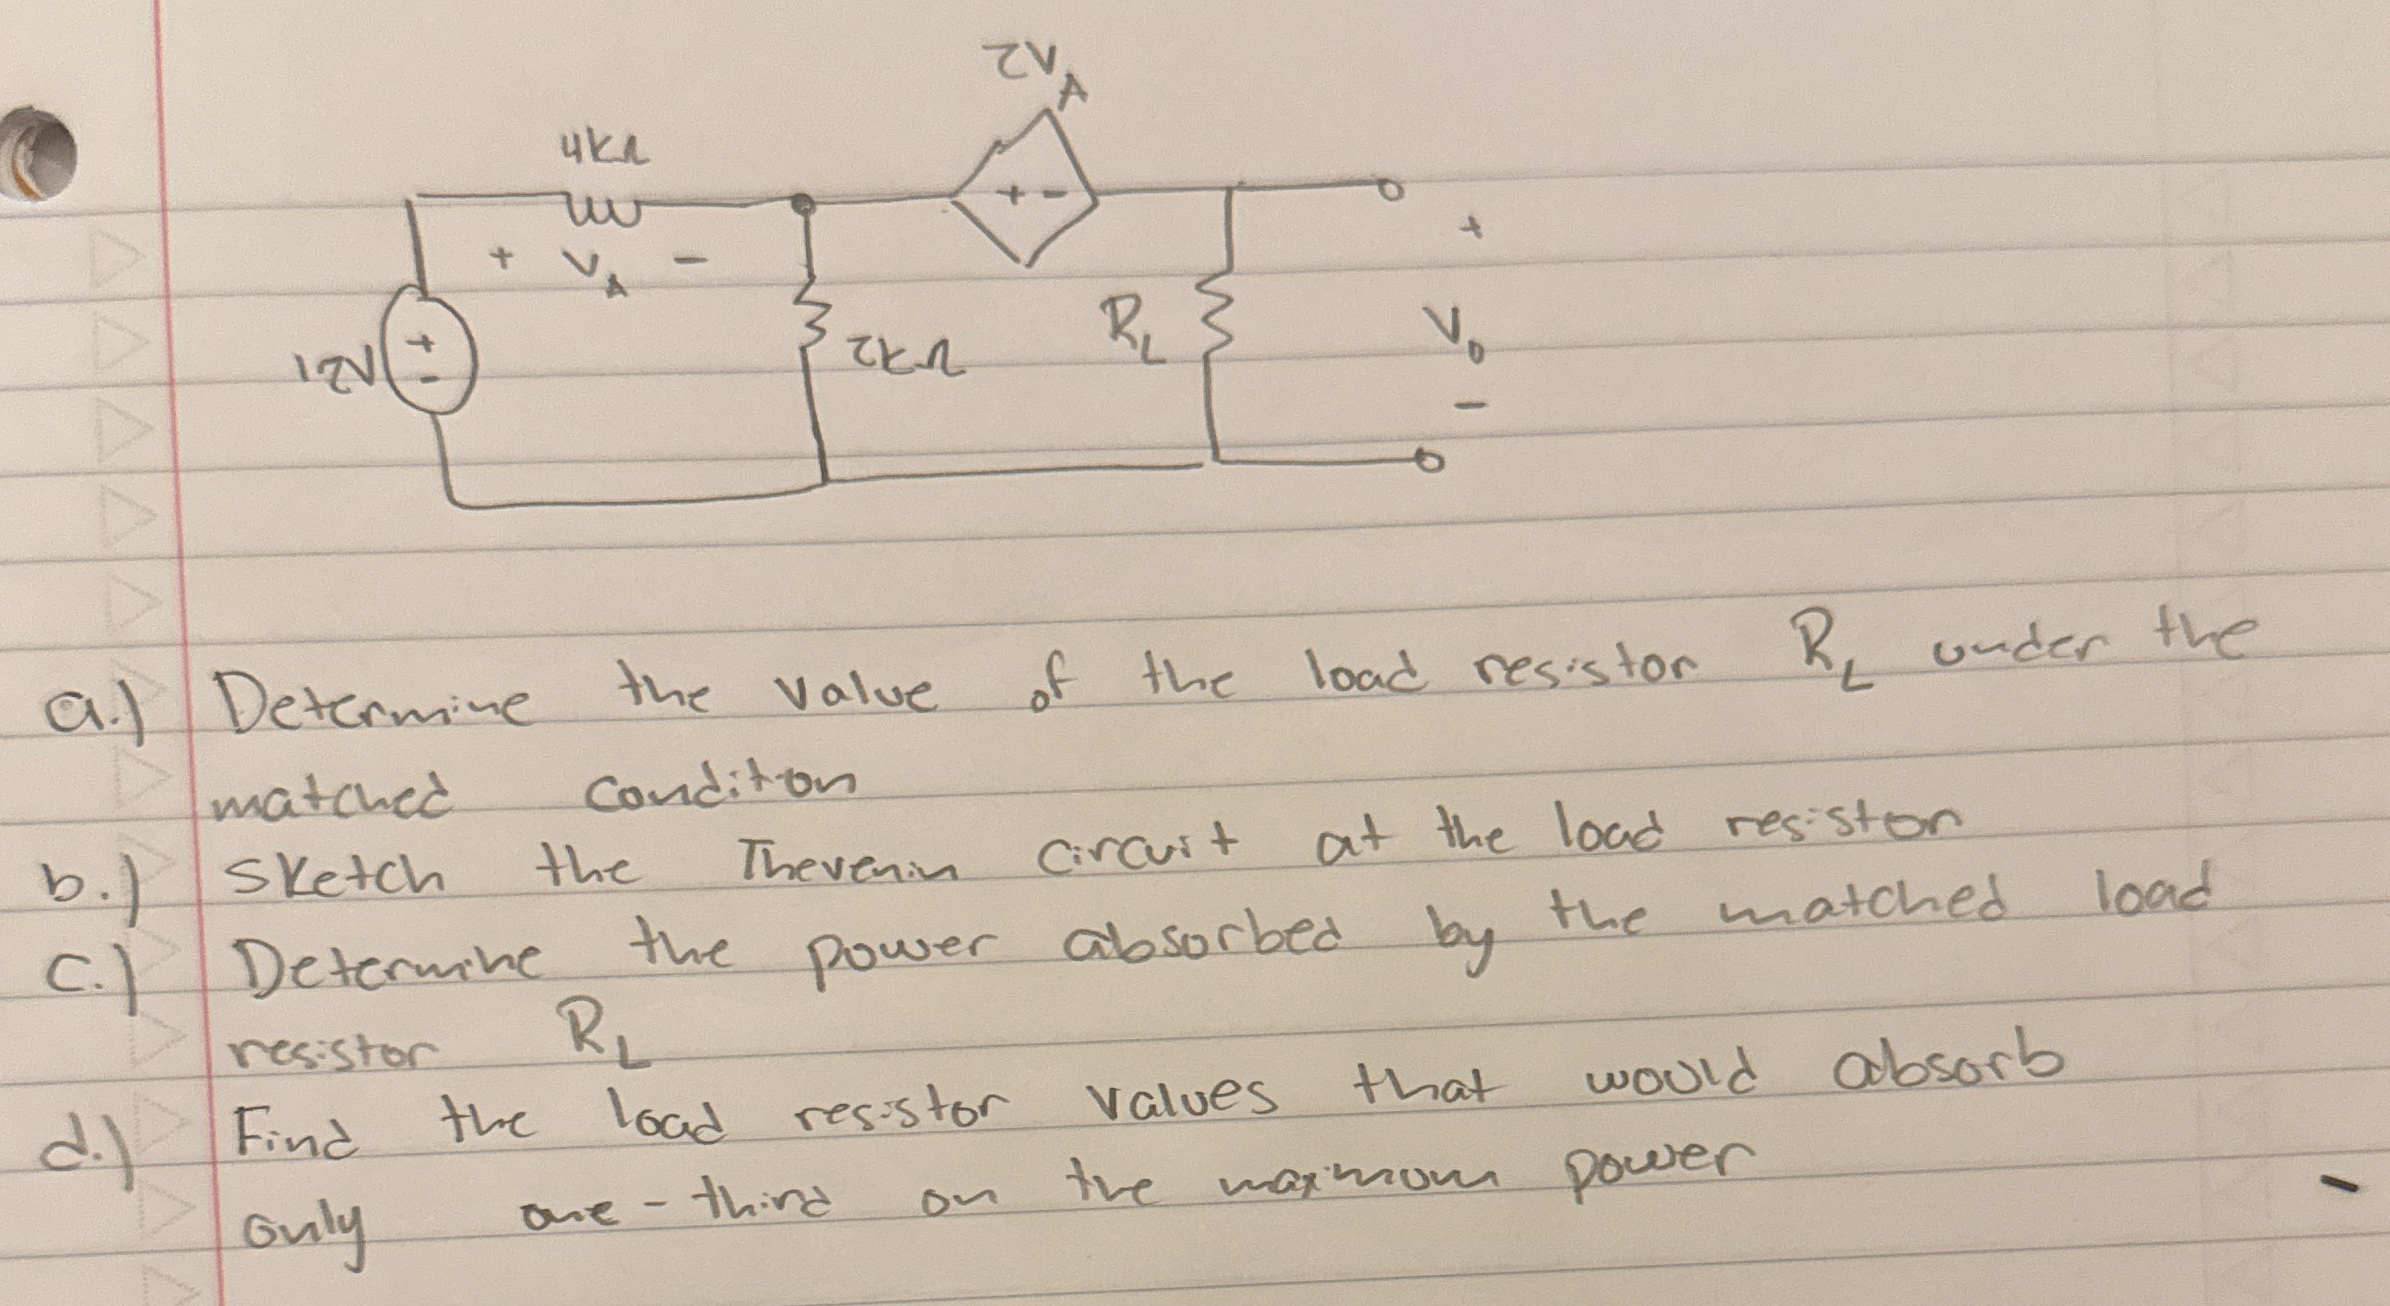 2V_A
4kΩ
+ -
+ V_A -
+
12V
+
-
2kΩ
R_L
V_0
-
a.) Determine the value of the load resistor R_L under the
matched conditon
b.) Sketch the Thevenin circuit at the load resistor
c.) Determine the power absorbed by the matched load
resistor R_L
d.) Find the load resistor values that would absorb
only one-third on the maximum power